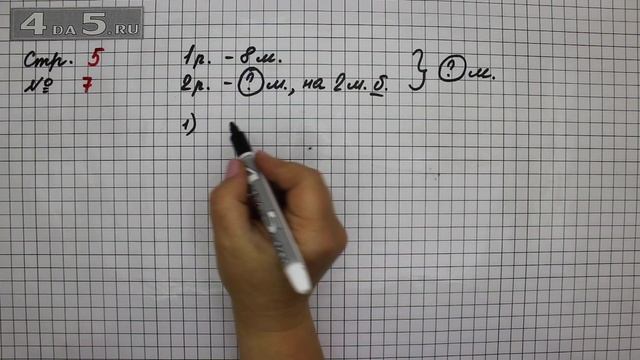 4DA5.RU
Стр. 5
№ 7
1р. - 8 м.
2р. - ? м., на 2 м. б.
} ? м.
1)